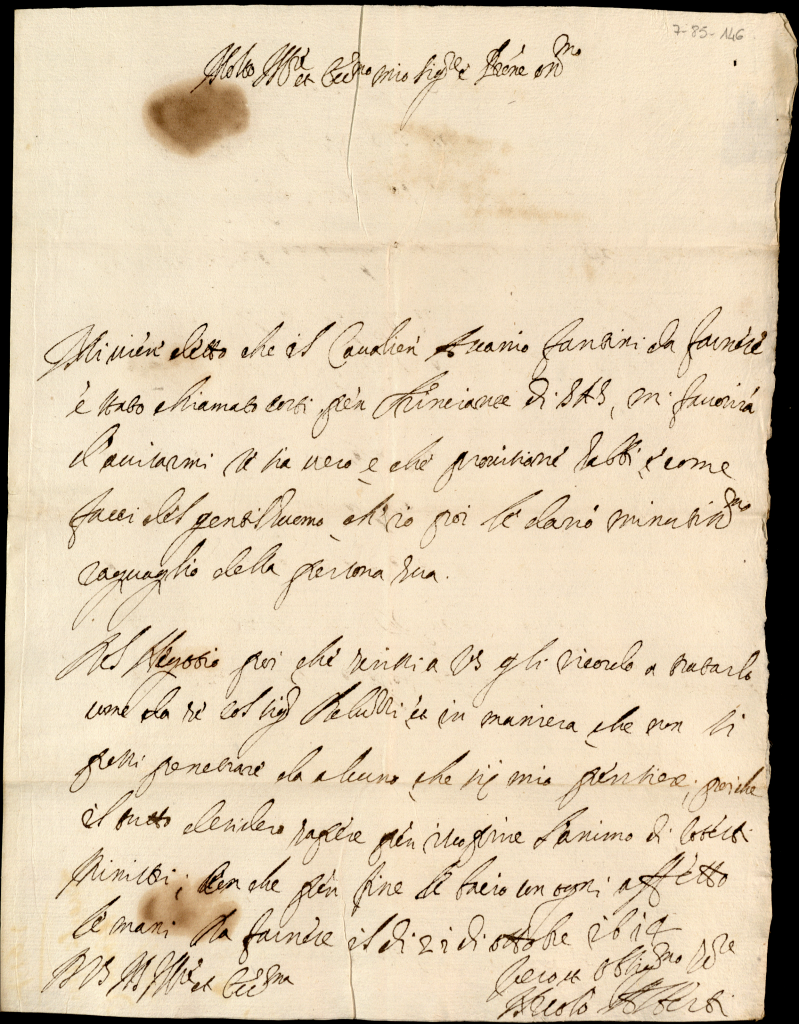 7-85-146
Molto Ill.re et Ecc.mo mio Sig.re e P.rone oss.mo
Mi vien detto che il Cavalier Ascanio fantini da
è stato chiamato costì per di S A S, mi favorirà
d'avisarmi se sia vero e che provisione habbi, e come
facci del gentilhuomo, ch'io poi le darò minutiss.mo
raguaglio della persona sua.
Nel Negotio poi che scrissi a VS gli ricordo a trattarlo
come da sè col sig.r et in maniera che non si
possi penetrare da alcuno che sij mio pensiere, poiche
il tutto desidero sapere per iscoprire l'animo di cotesti
Ministri; con che per fine le bacio con ogni affetto
le mani Da il di 21 di ottobre 1614
D VS M Ill.re et Ecc.ma
obblig.mo S.re